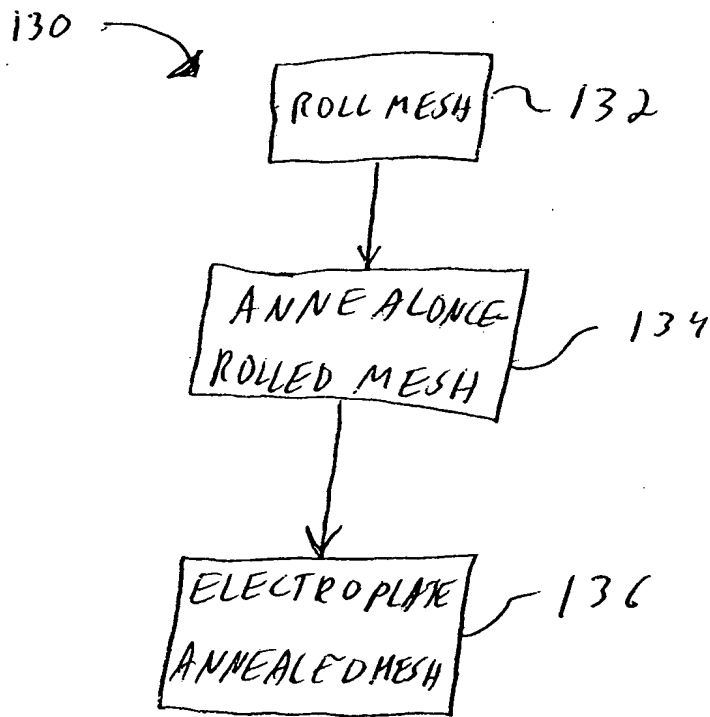 130
ROLL MESH
132
ANNEAL ONCE-
ROLLED MESH
134
ELECTROPLATE
ANNEALED MESH
136